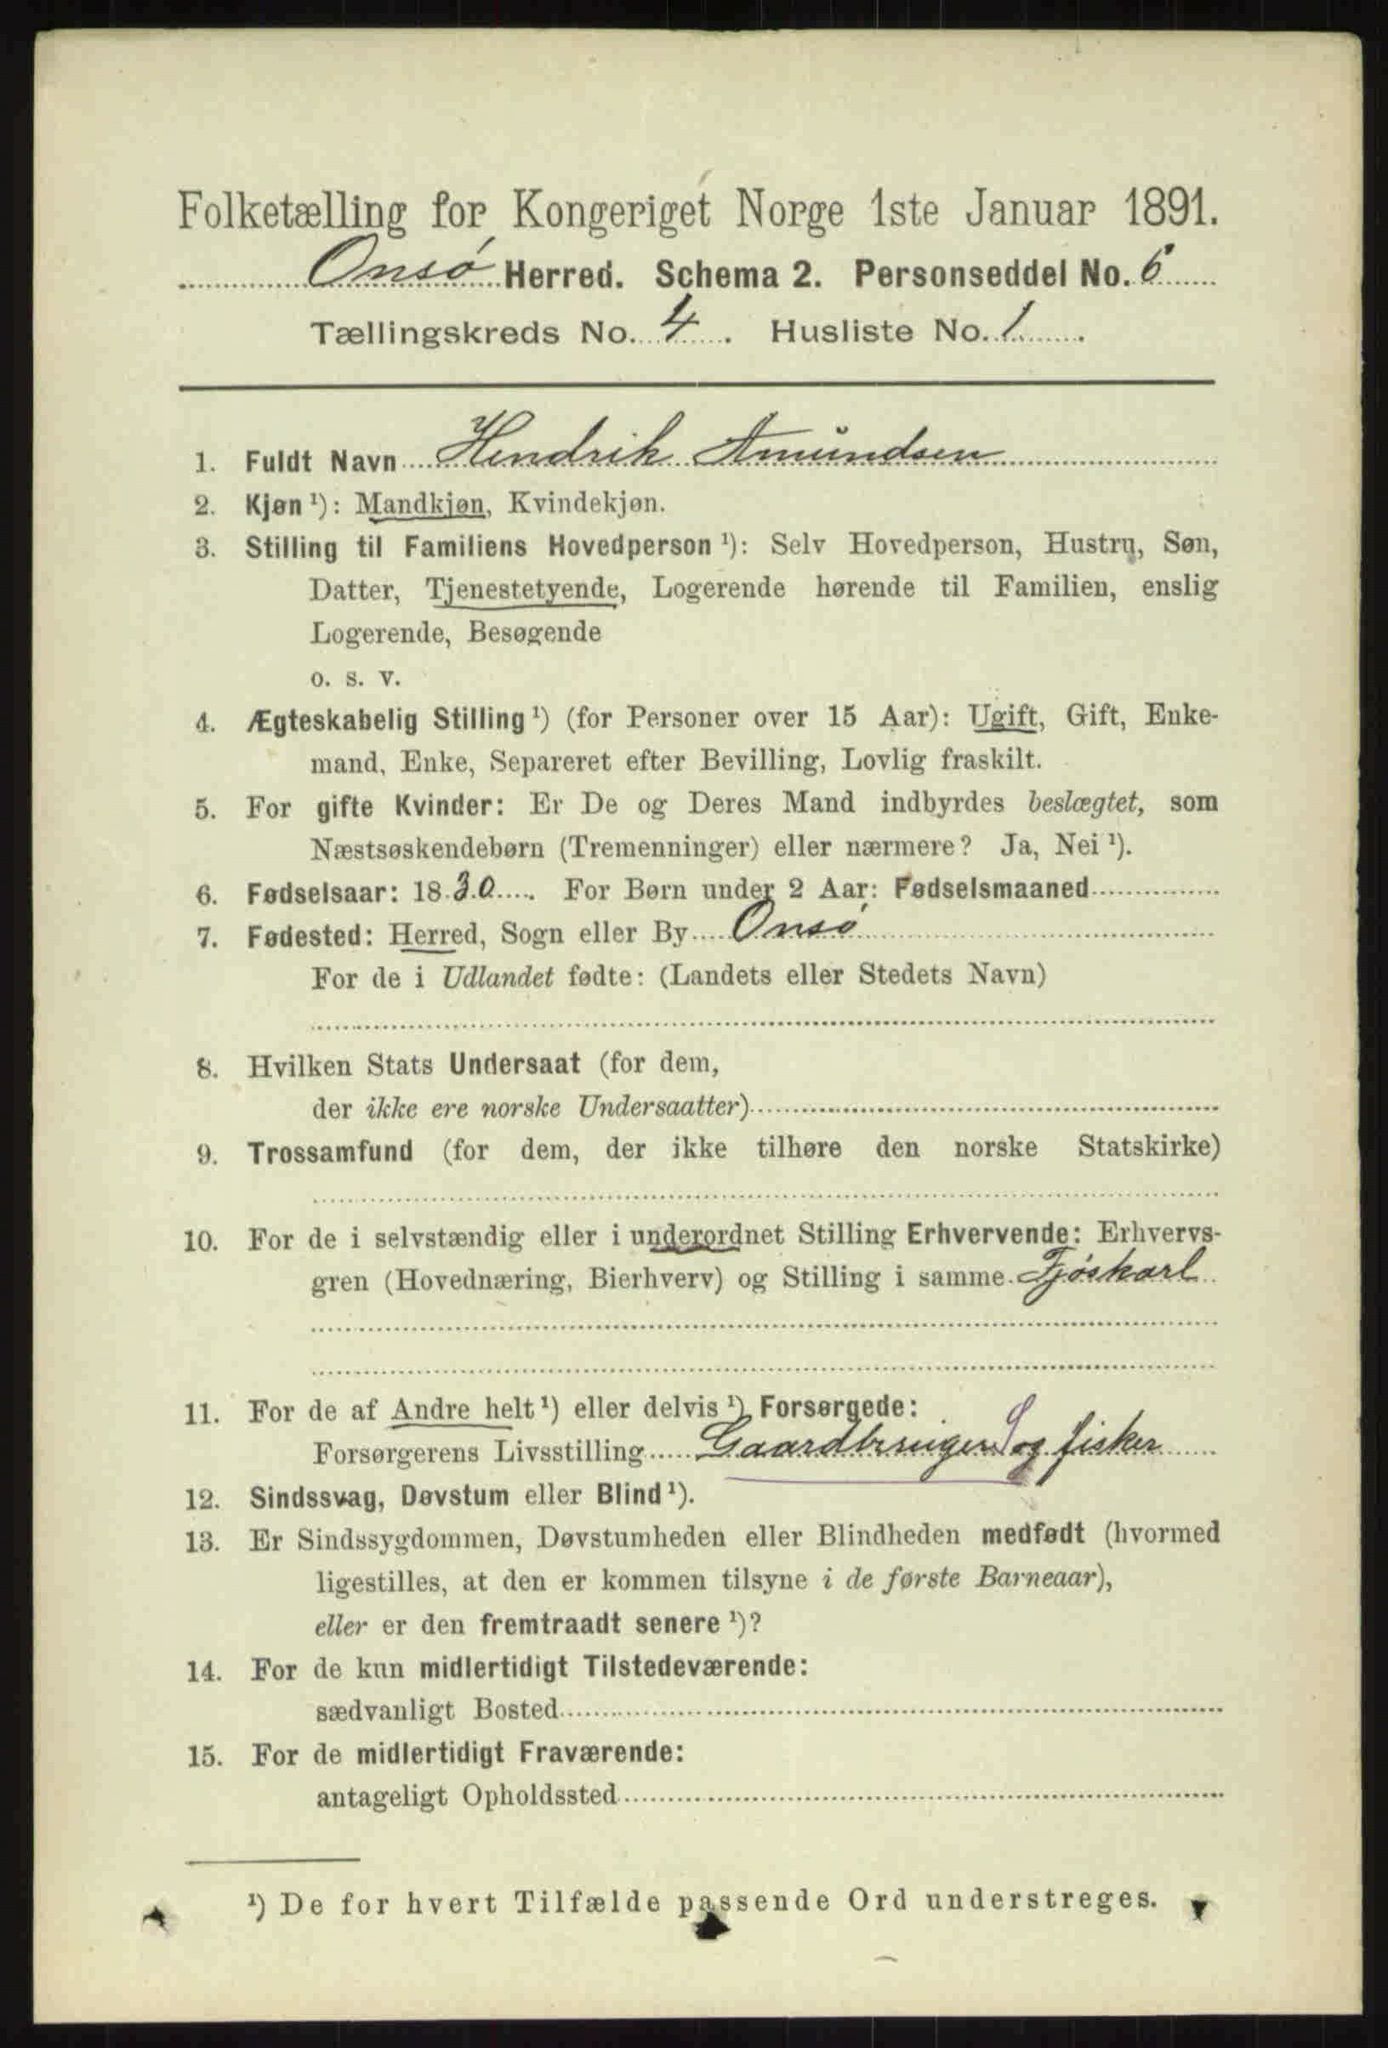 Folketælling for Kongeriget Norge 1ste Januar 1891.
Onsø Herred. Schema 2. Personseddel No. 6
Tællingskreds No. 4. Husliste No. 1.
1. Fuldt Navn Hendrik Amundsen
2. Kjøn ¹): Mandkjøn, Kvindekjøn.
3. Stilling til Familiens Hovedperson ¹): Selv Hovedperson, Hustru, Søn,
Datter, Tjenestetyende, Logerende hørende til Familien, enslig
Logerende, Besøgende
o. s. v.
4. Ægteskabelig Stilling ¹) (for Personer over 15 Aar): Ugift, Gift, Enke-
mand, Enke, Separeret efter Bevilling, Lovlig fraskilt.
5. For gifte Kvinder: Er De og Deres Mand indbyrdes beslægtet, som
Næstsøskendebørn (Tremenninger) eller nærmere? Ja, Nei ¹).
6. Fødselsaar: 1830. For Børn under 2 Aar: Fødselsmaaned
7. Fødested: Herred, Sogn eller By Onsø
For de i Udlandet fødte: (Landets eller Stedets Navn)
8. Hvilken Stats Undersaat (for dem,
der ikke ere norske Undersaatter)
9. Trossamfund (for dem, der ikke tilhøre den norske Statskirke)
10. For de i selvstændig eller i underordnet Stilling Erhvervende: Erhvervs-
gren (Hovednæring, Bierhverv) og Stilling i samme. Fjøskarl
11. For de af Andre helt ¹) eller delvis ¹) Forsørgede:
Forsørgerens Livsstilling Gaardbruger og fisker
12. Sindssvag, Døvstum eller Blind ¹).
13. Er Sindssygdommen, Døvstumheden eller Blindheden medfødt (hvormed
ligestilles, at den er kommen tilsyne i de første Barneaar),
eller er den fremtraadt senere ¹)?
14. For de kun midlertidigt Tilstedeværende:
sædvanligt Bosted
15. For de midlertidigt Fraværende:
antageligt Opholdssted
¹) De for hvert Tilfælde passende Ord understreges.